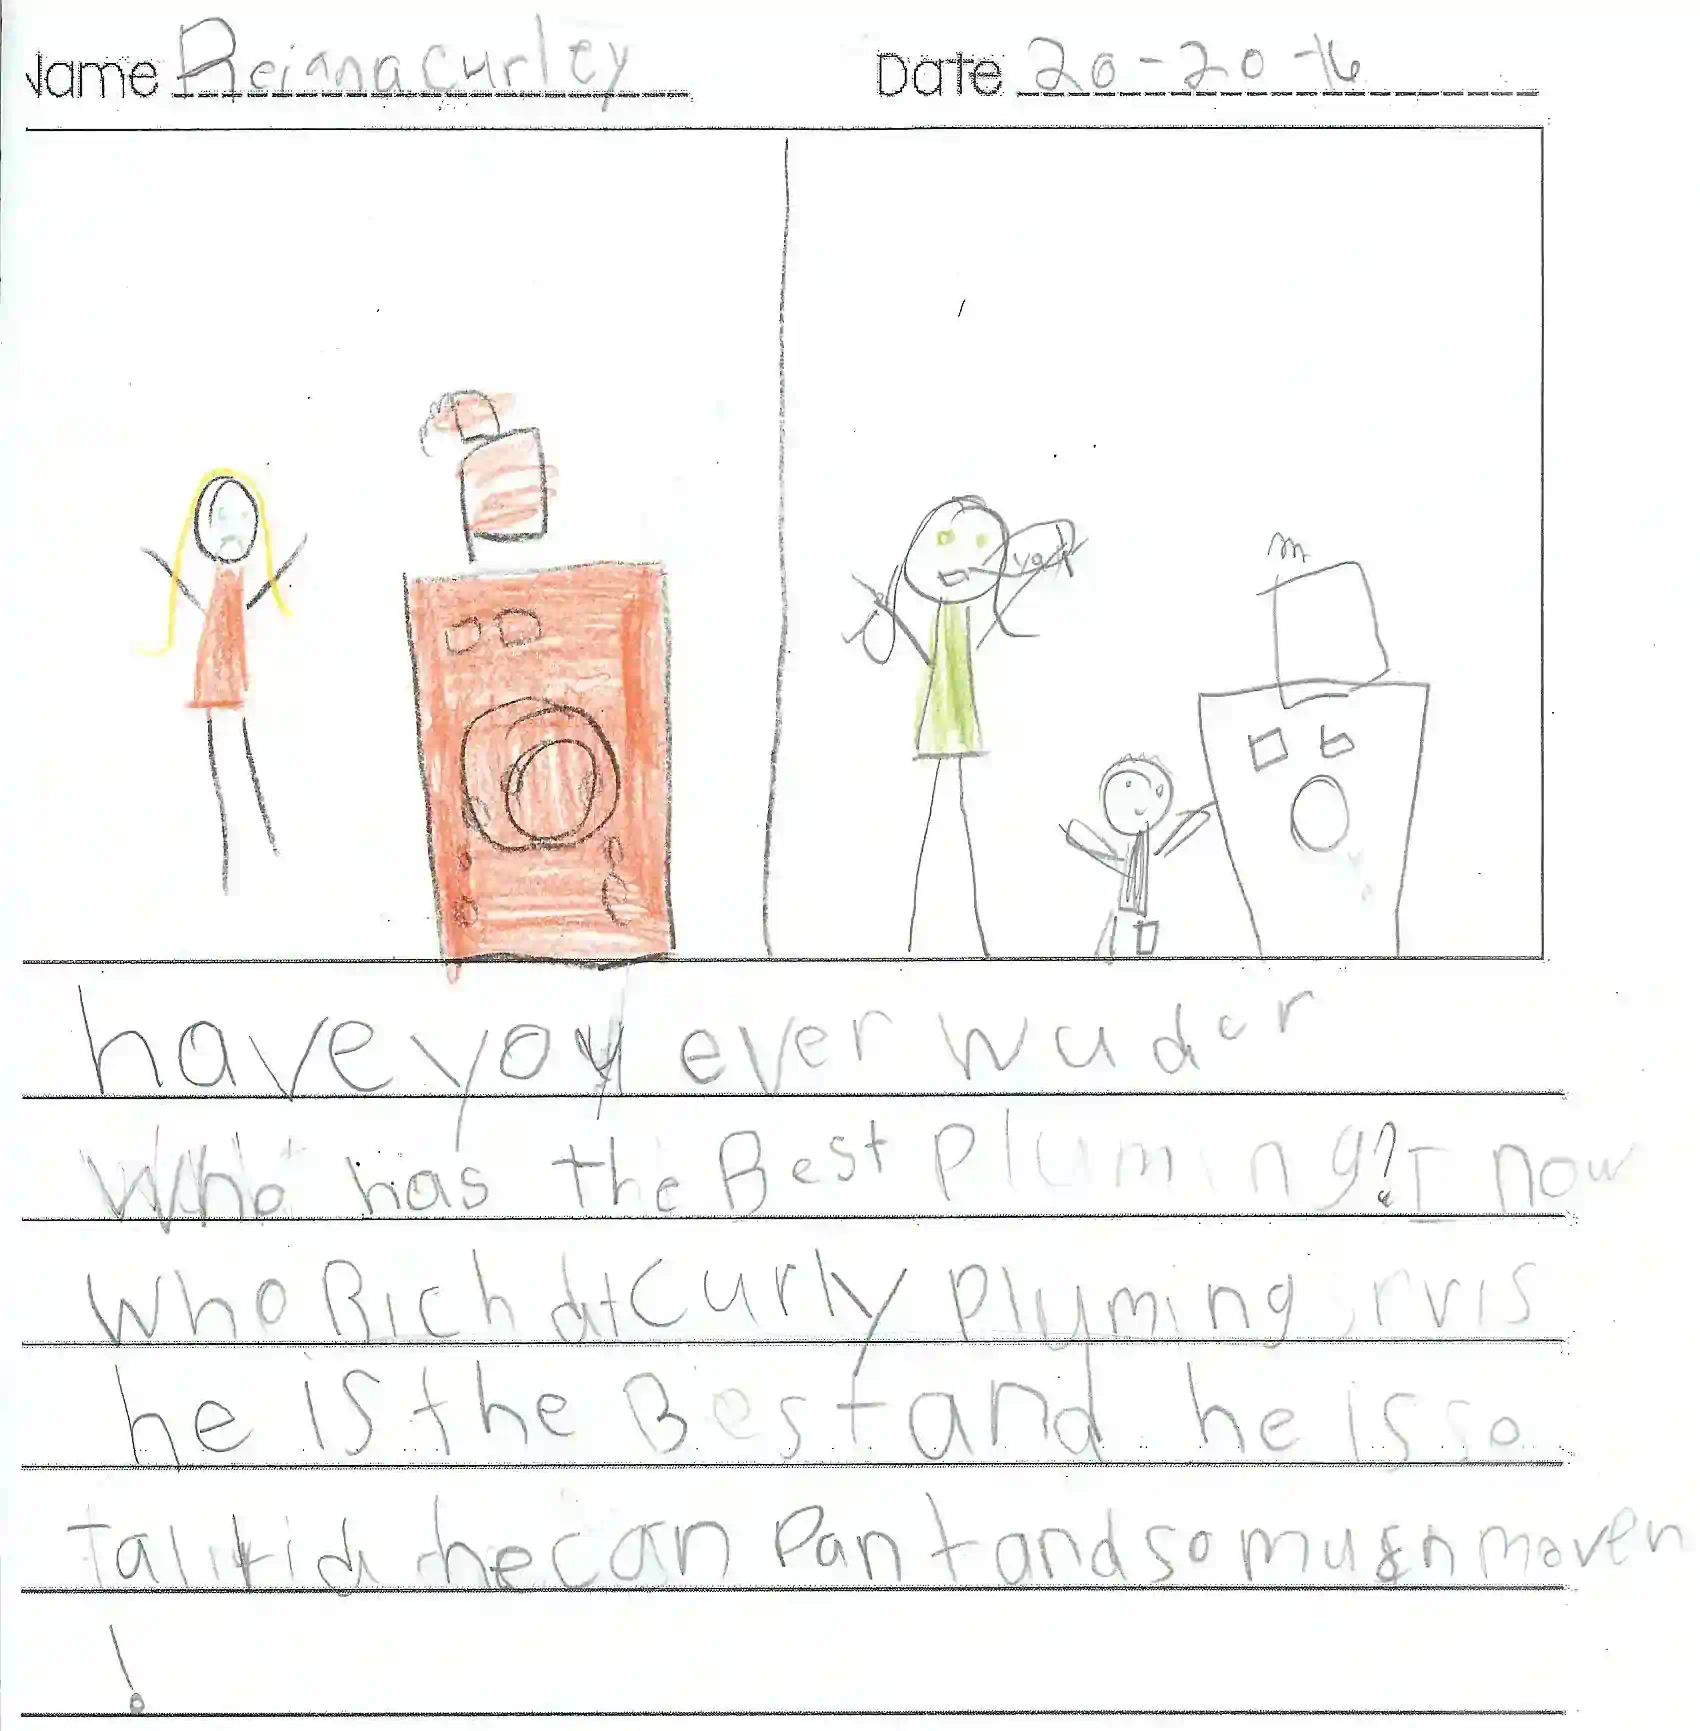 Name Reiana curley Date 20-20-16
yay
have you ever wudar
Who has the Best pluming? I now
Who Rich at Curly pluming srvis
he is the Best and he is so
Talitid he can Pant and so much moven
!